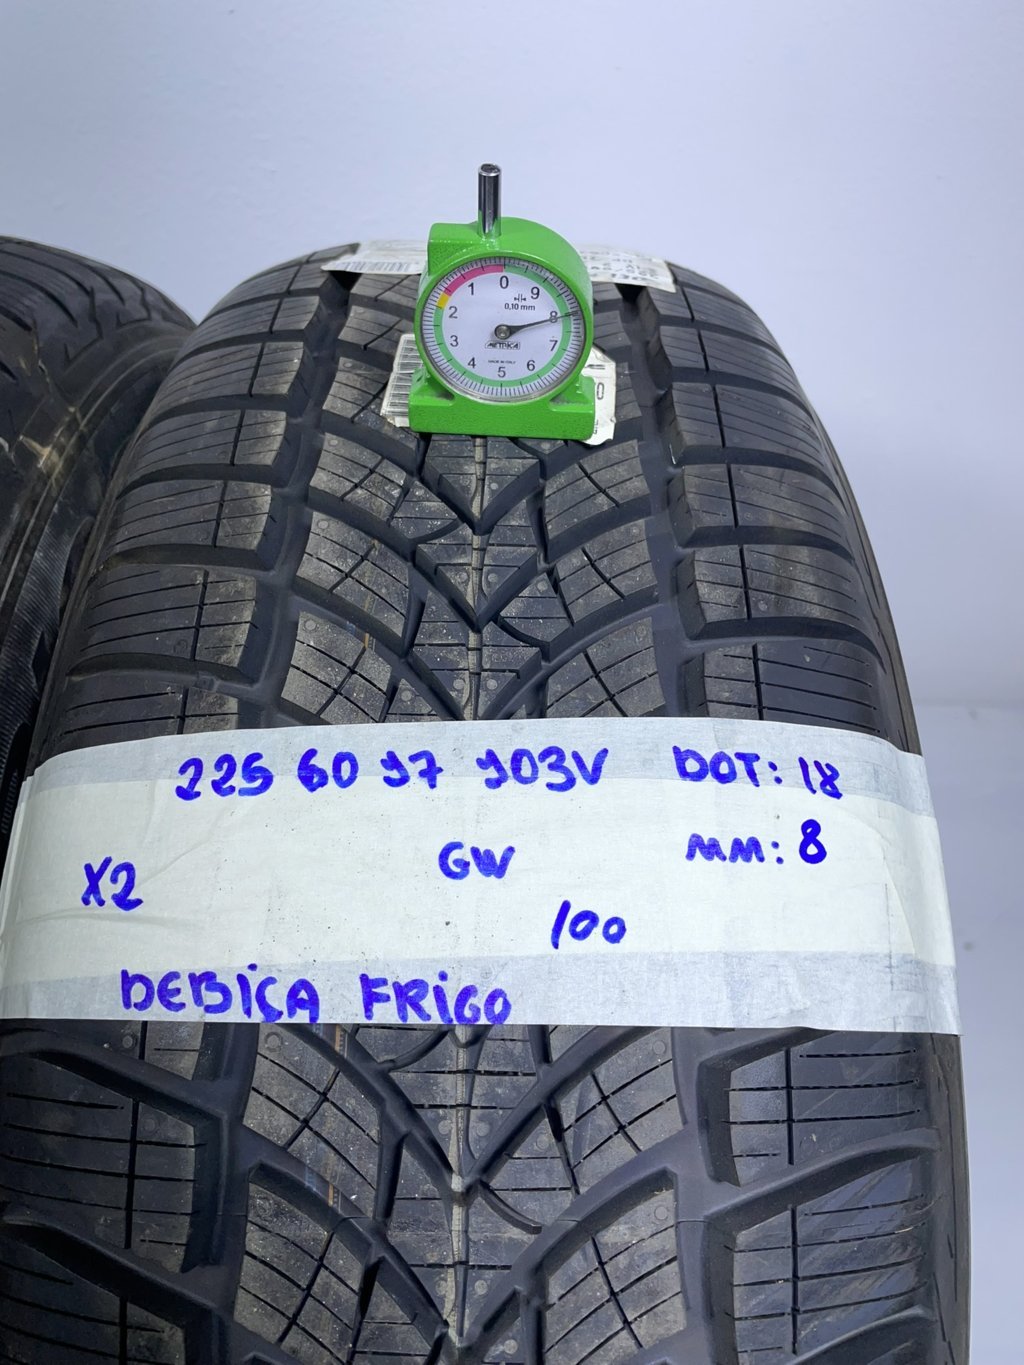 0
1
9
0,10 mm
2
8
METRICA
3
7
MADE IN ITALY
4
6
5
225 60 17 103V DOT: 18
GW MM: 8
X2
100
DEBİCA FRİGO